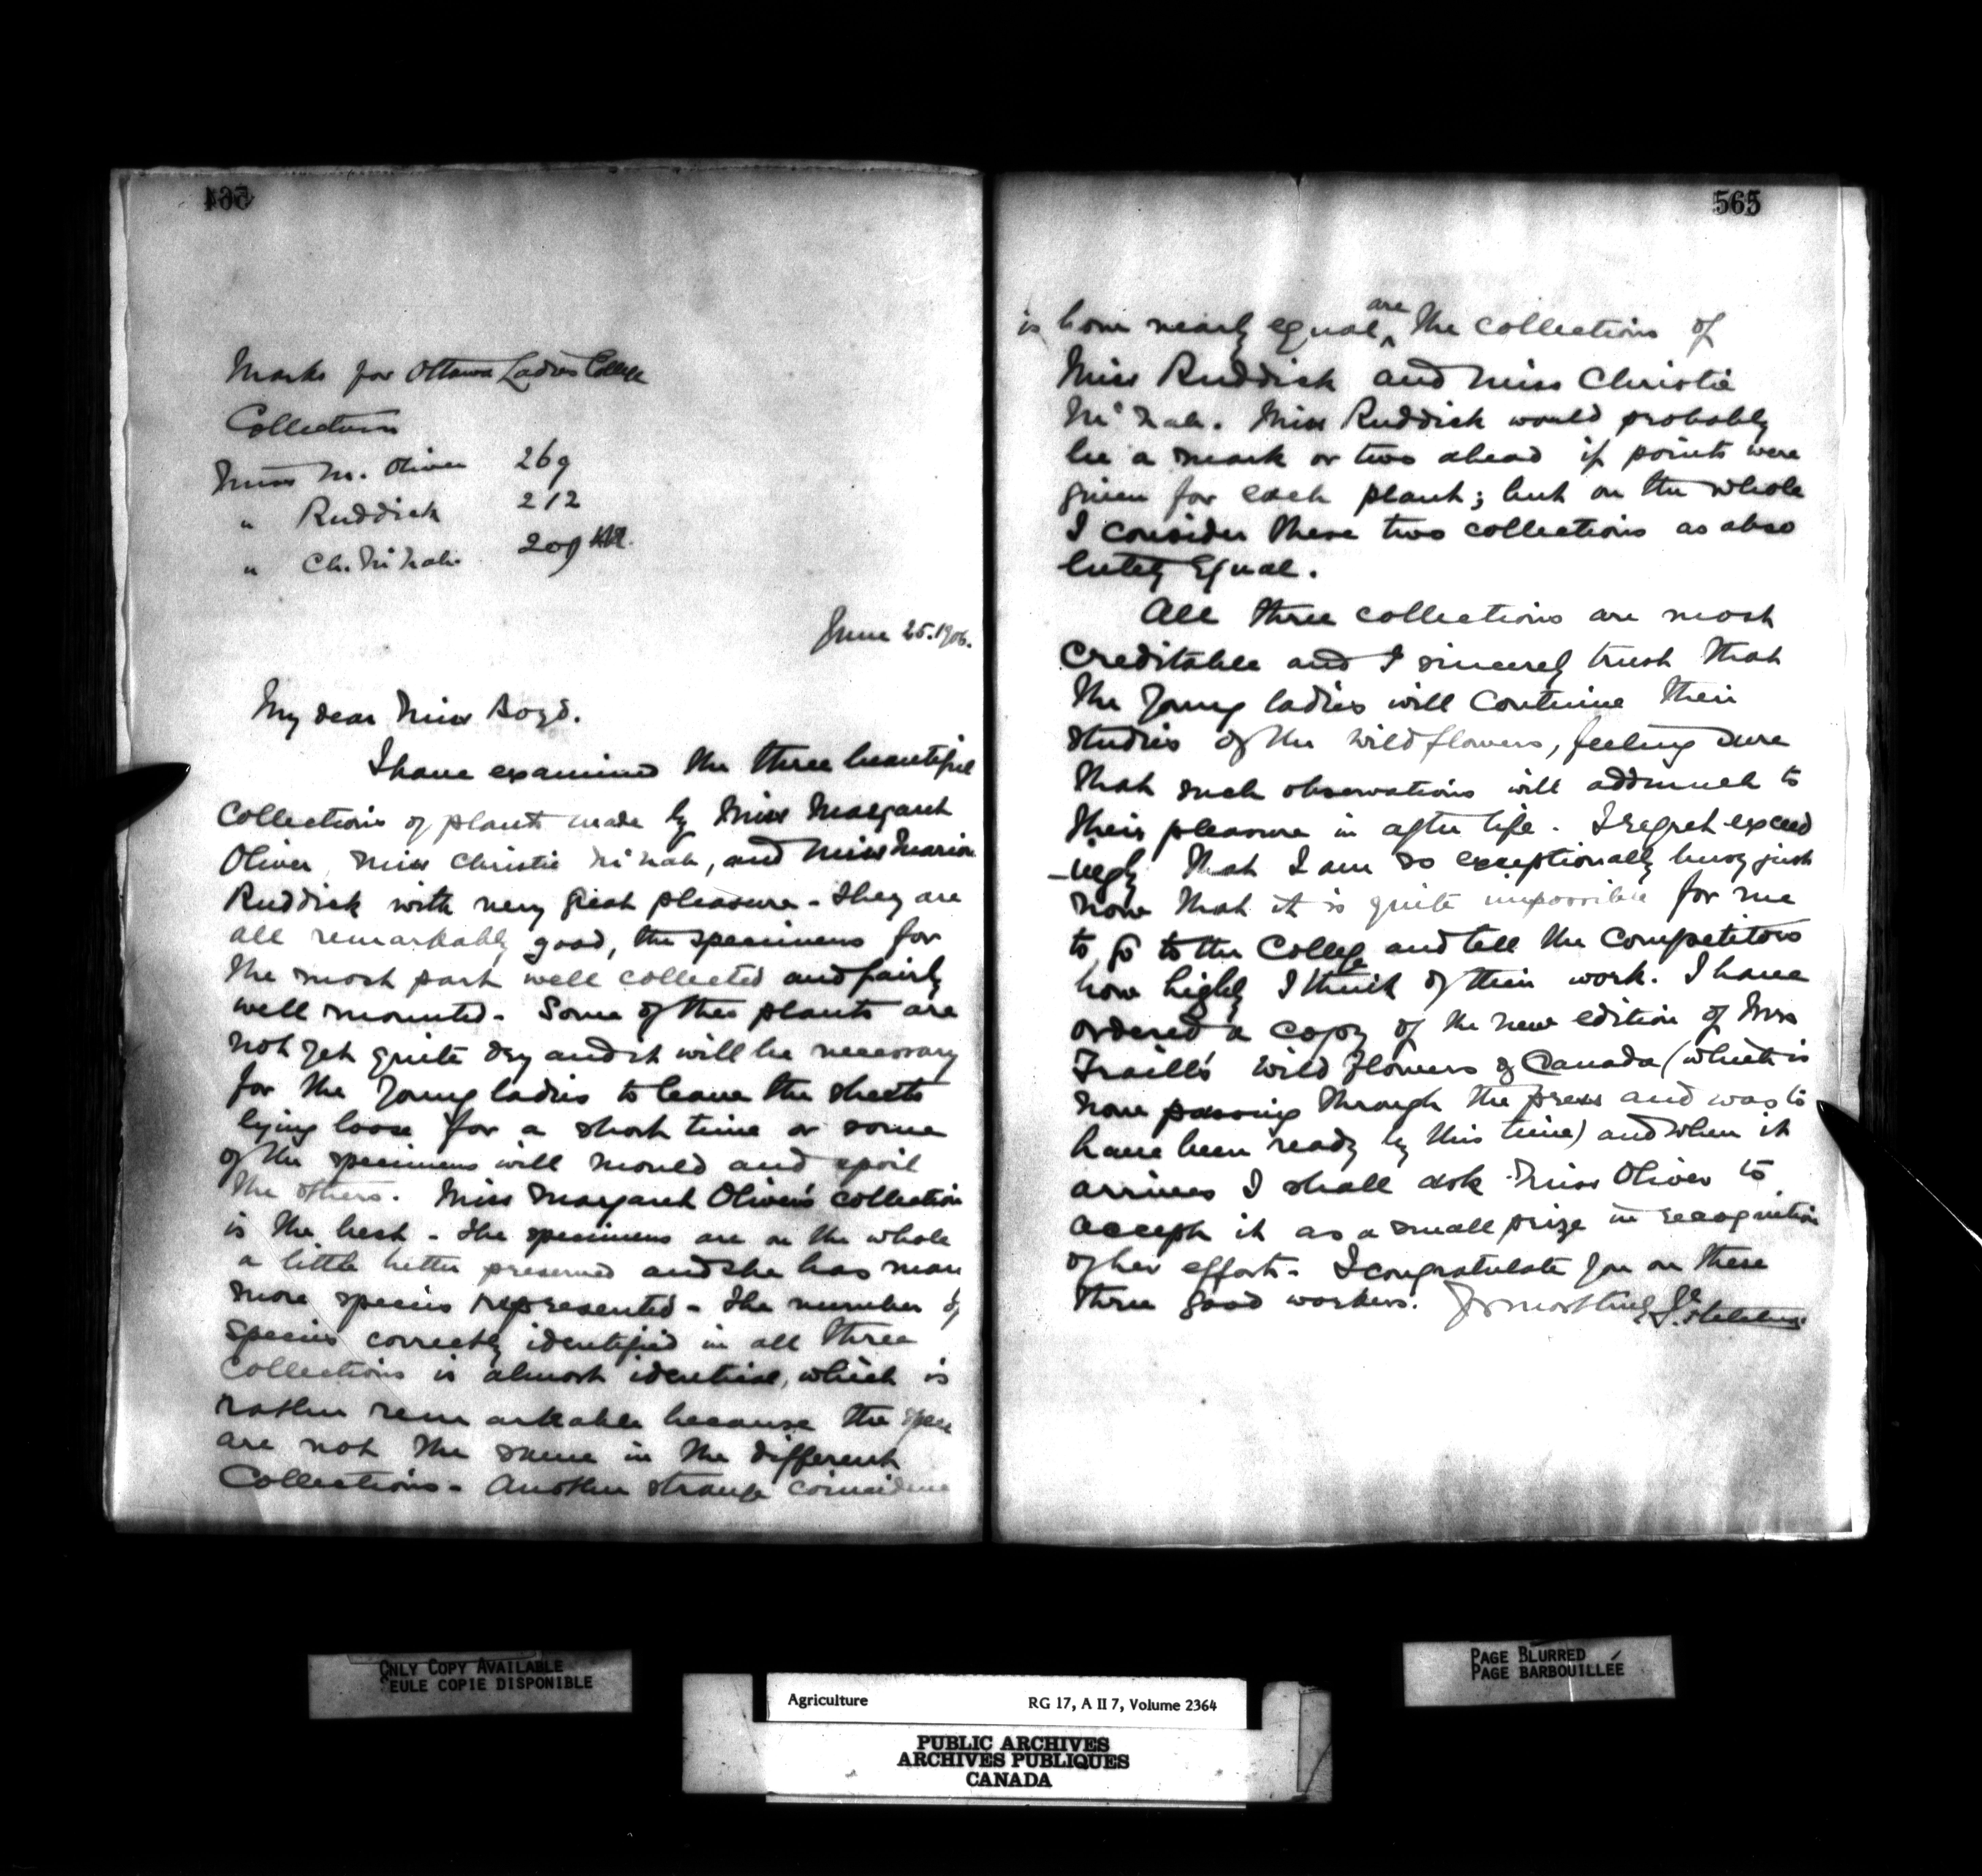 564
Marks for Ottawa Ladies College
Collections
Miss M. Oliver 269
" Ruddick 212
" Ch. McNab. 209
June 25. 1906.
My dear Miss Boyd.
I have examined the three beautiful
collections of plants made by Miss Margaret
Oliver, Miss Christie McNab, and Miss Marion
Ruddick with very great pleasure - They are
all remarkably good, the specimens for
the most part well collected and fairly
well mounted - Some of the plants are
not yet quite dry and it will be necessary
for the young ladies to leave the sheets
lying loose for a short time or some
of the specimens will mould and spoil
the others. Miss Margaret Oliver's collection
is the best - The specimens are on the whole
a little better preserved and she has many
more species represented - The number of
species correctly identified in all three
collections is almost identical, which is
rather remarkable because the
are not the same in the different
Collections - Another strange coincidence
565
is how nearly equal are the collections of
Miss Ruddick and Miss Christie
McNab. Miss Ruddick would probably
be a mark or two ahead if points were
given for each plant; but on the whole
I consider these two collections as abso
lutely Equal.
All three collections are most
creditable and I sincerely trust that
the young ladies will continue their
studies of the wild flowers, feeling sure
that such observations will add much to
their pleasure in after life. I regret exceed
-ingly that I am so exceptionally busy just
now that it is quite impossible for me
to go to the College and tell the competitors
how highly I think of their work. I have
ordered a copy of the new edition of Mrs
Traill's Wild Flowers of Canada (which is
now passing through the press and was to
have been ready by this time) and when it
arrives I shall ask Miss Oliver to
accept it as a small prize in recognition
of her efforts - I congratulate you on these
three good workers. Yrs most truly J. Fletcher
ONLY COPY AVAILABLE
SEULE COPIE DISPONIBLE
PAGE BLURRED
PAGE BARBOUILLÉE
Agriculture RG 17, A II 7, Volume 2364
PUBLIC ARCHIVES
ARCHIVES PUBLIQUES
CANADA